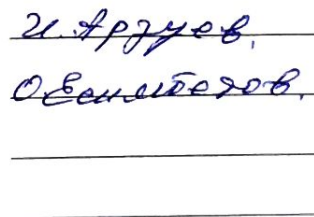 И. Арзуев.
О. Есимбетов.